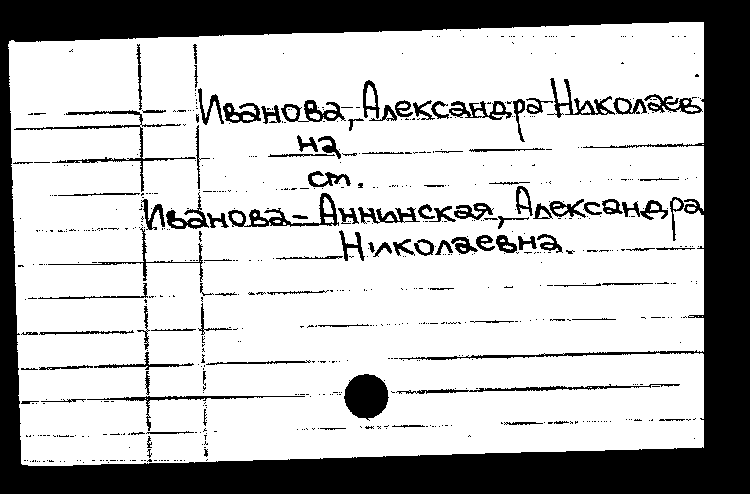 Иванова, Александра Николаев
на
ст.
Иванова-Аннинская, Александра
Николаевна.